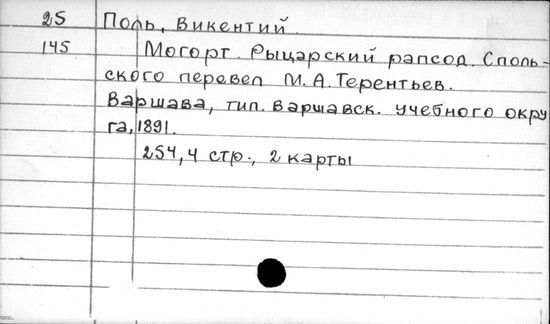 25 Поль, Викентий.
145 Могорт. Рыцарский рапсод. Споль-
ского перевел М.А. Терентьев.
Варшава, тип. Варшавск. учебного окру
га, 1891.
254, 4 стр., 2 карты